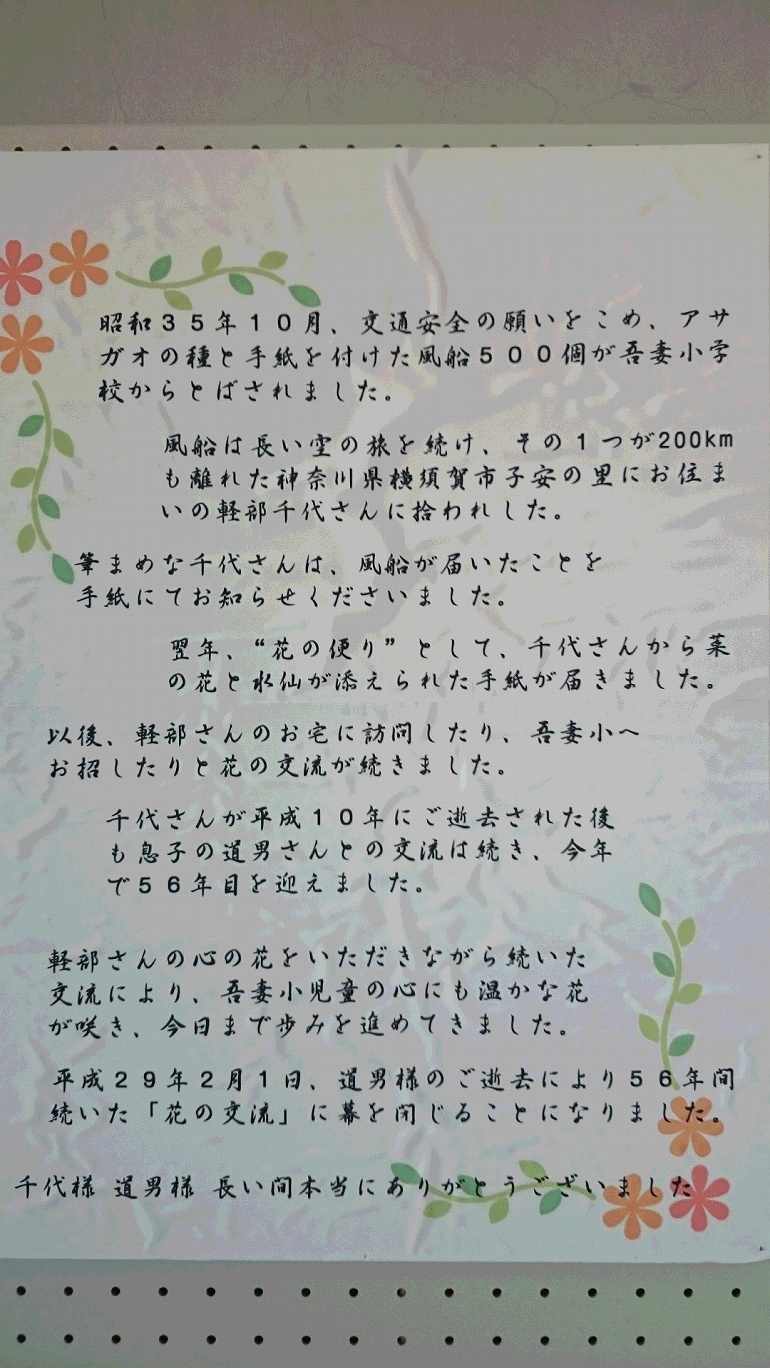 昭和３５年１０月、交通安全の願いをこめ、アサ
ガオの種と手紙を付けた風船５００個が吾妻小学
校からとばされました。
風船は長い空の旅を続け、その１つが200km
も離れた神奈川県横須賀市子安の里にお住ま
いの軽部千代さんに拾われした。
筆まめな千代さんは、風船が届いたことを
手紙にてお知らせくださいました。
翌年、“花の便り”として、千代さんから菜
の花と水仙が添えられた手紙が届きました。
以後、軽部さんのお宅に訪問したり、吾妻小へ
お招したりと花の交流が続きました。
千代さんが平成１０年にご逝去された後
も息子の道男さんとの交流は続き、今年
で５６年目を迎えました。
軽部さんの心の花をいただきながら続いた
交流により、吾妻小児童の心にも温かな花
が咲き、今日まで歩みを進めてきました。
平成２９年２月１日、道男様のご逝去により５６年間
続いた「花の交流」に幕を閉じることになりました。
千代様 道男様 長い間本当にありがとうございました